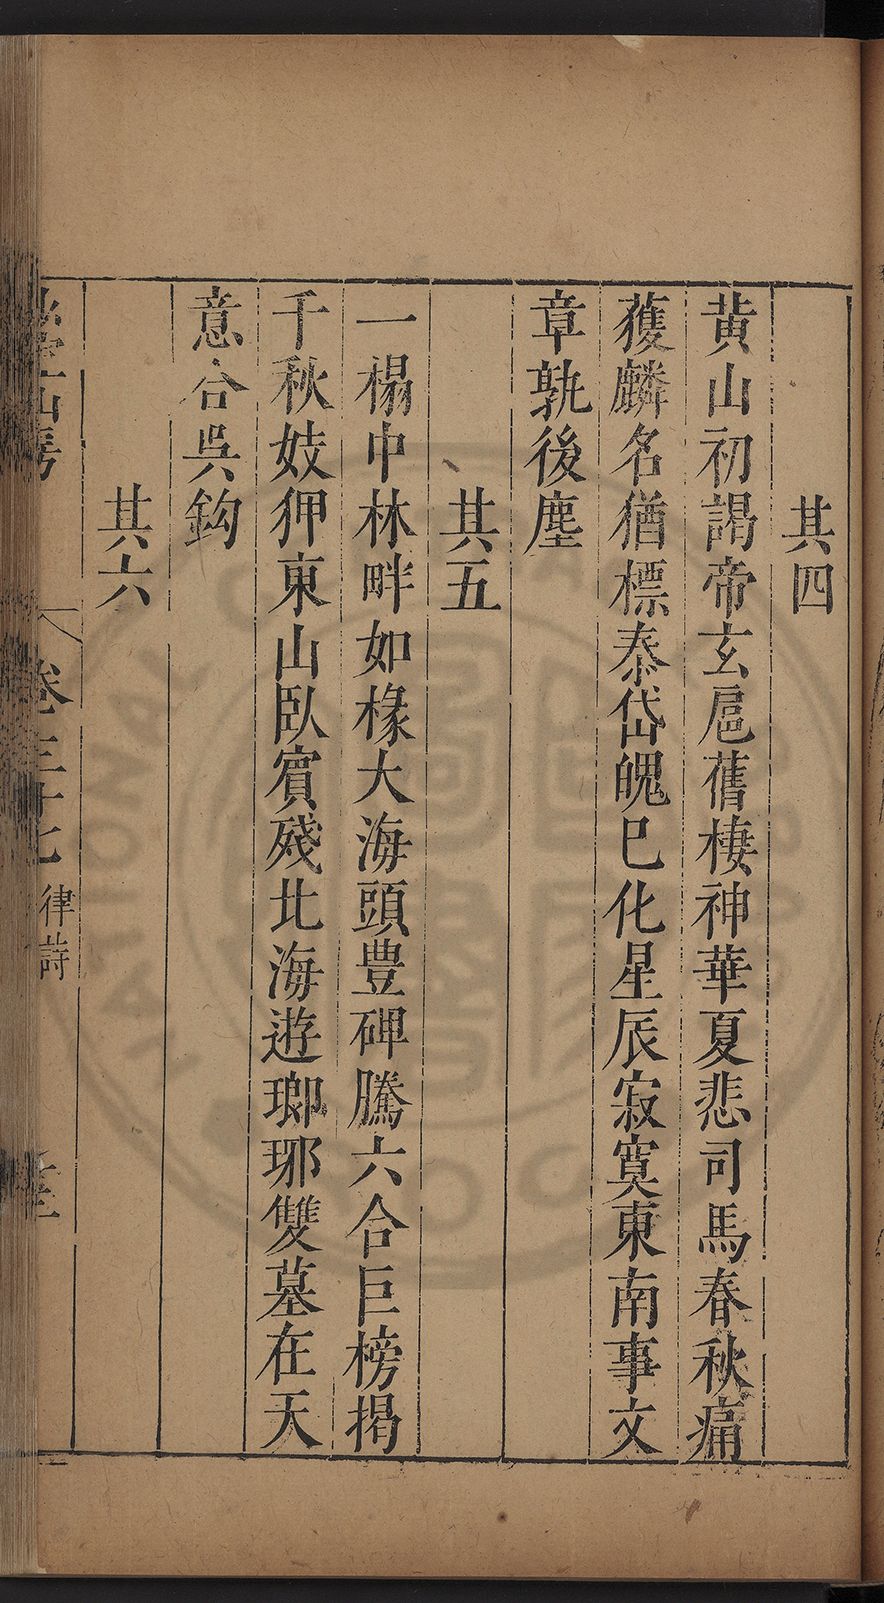 其四
黄山初謁帝玄扈舊棲神華夏悲司馬春秋痛
獲麟名猶標泰岱魄已化星辰寂寞東南事文
章孰後塵
其五
一榻中林畔如椽大海頭豊碑騰六合巨榜揭
千秋妓狎東山臥賓殘北海遊瑯琊雙墓在天
意合吳鈎
其六
山房
卷三十七 律詩